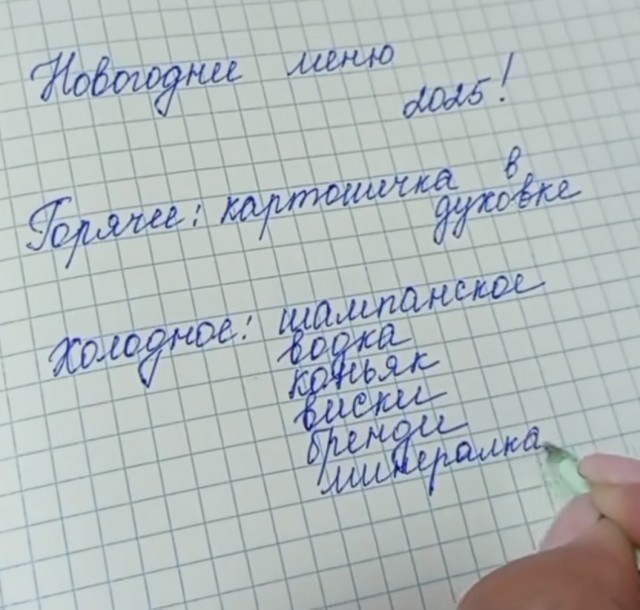 Новогоднее меню
2025!
Горячее: картошичка в
духовке
Холодное: шампанское
водка
коньяк
виски
бренди
минералка